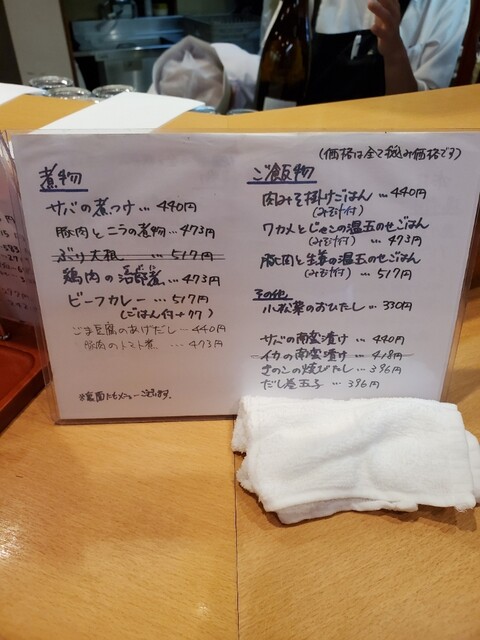 (価格は全て税込み価格です)
煮物
サバの煮つけ…440円
豚肉とニラの煮物…473円
ぶり大根…517円
鶏肉の治部煮…473円
ビーフカレー…517円
(ごはん付+77)
ごま豆腐のあげだし…440円
豚肉のトマト煮…473円
※裏面にもメニューございます。
ご飯物
肉みそ掛けごはん…440円
(みそ汁付)
ワカメとじゃこの温玉のせごはん
(みそ汁付)…473円
豚肉と生姜の温玉のせごはん
(みそ汁付)…517円
その他
小松菜のおひたし…330円
サバの南蛮漬け…440円
イカの南蛮漬け…418円
きのこの焼びたし…396円
だし巻玉子…396円